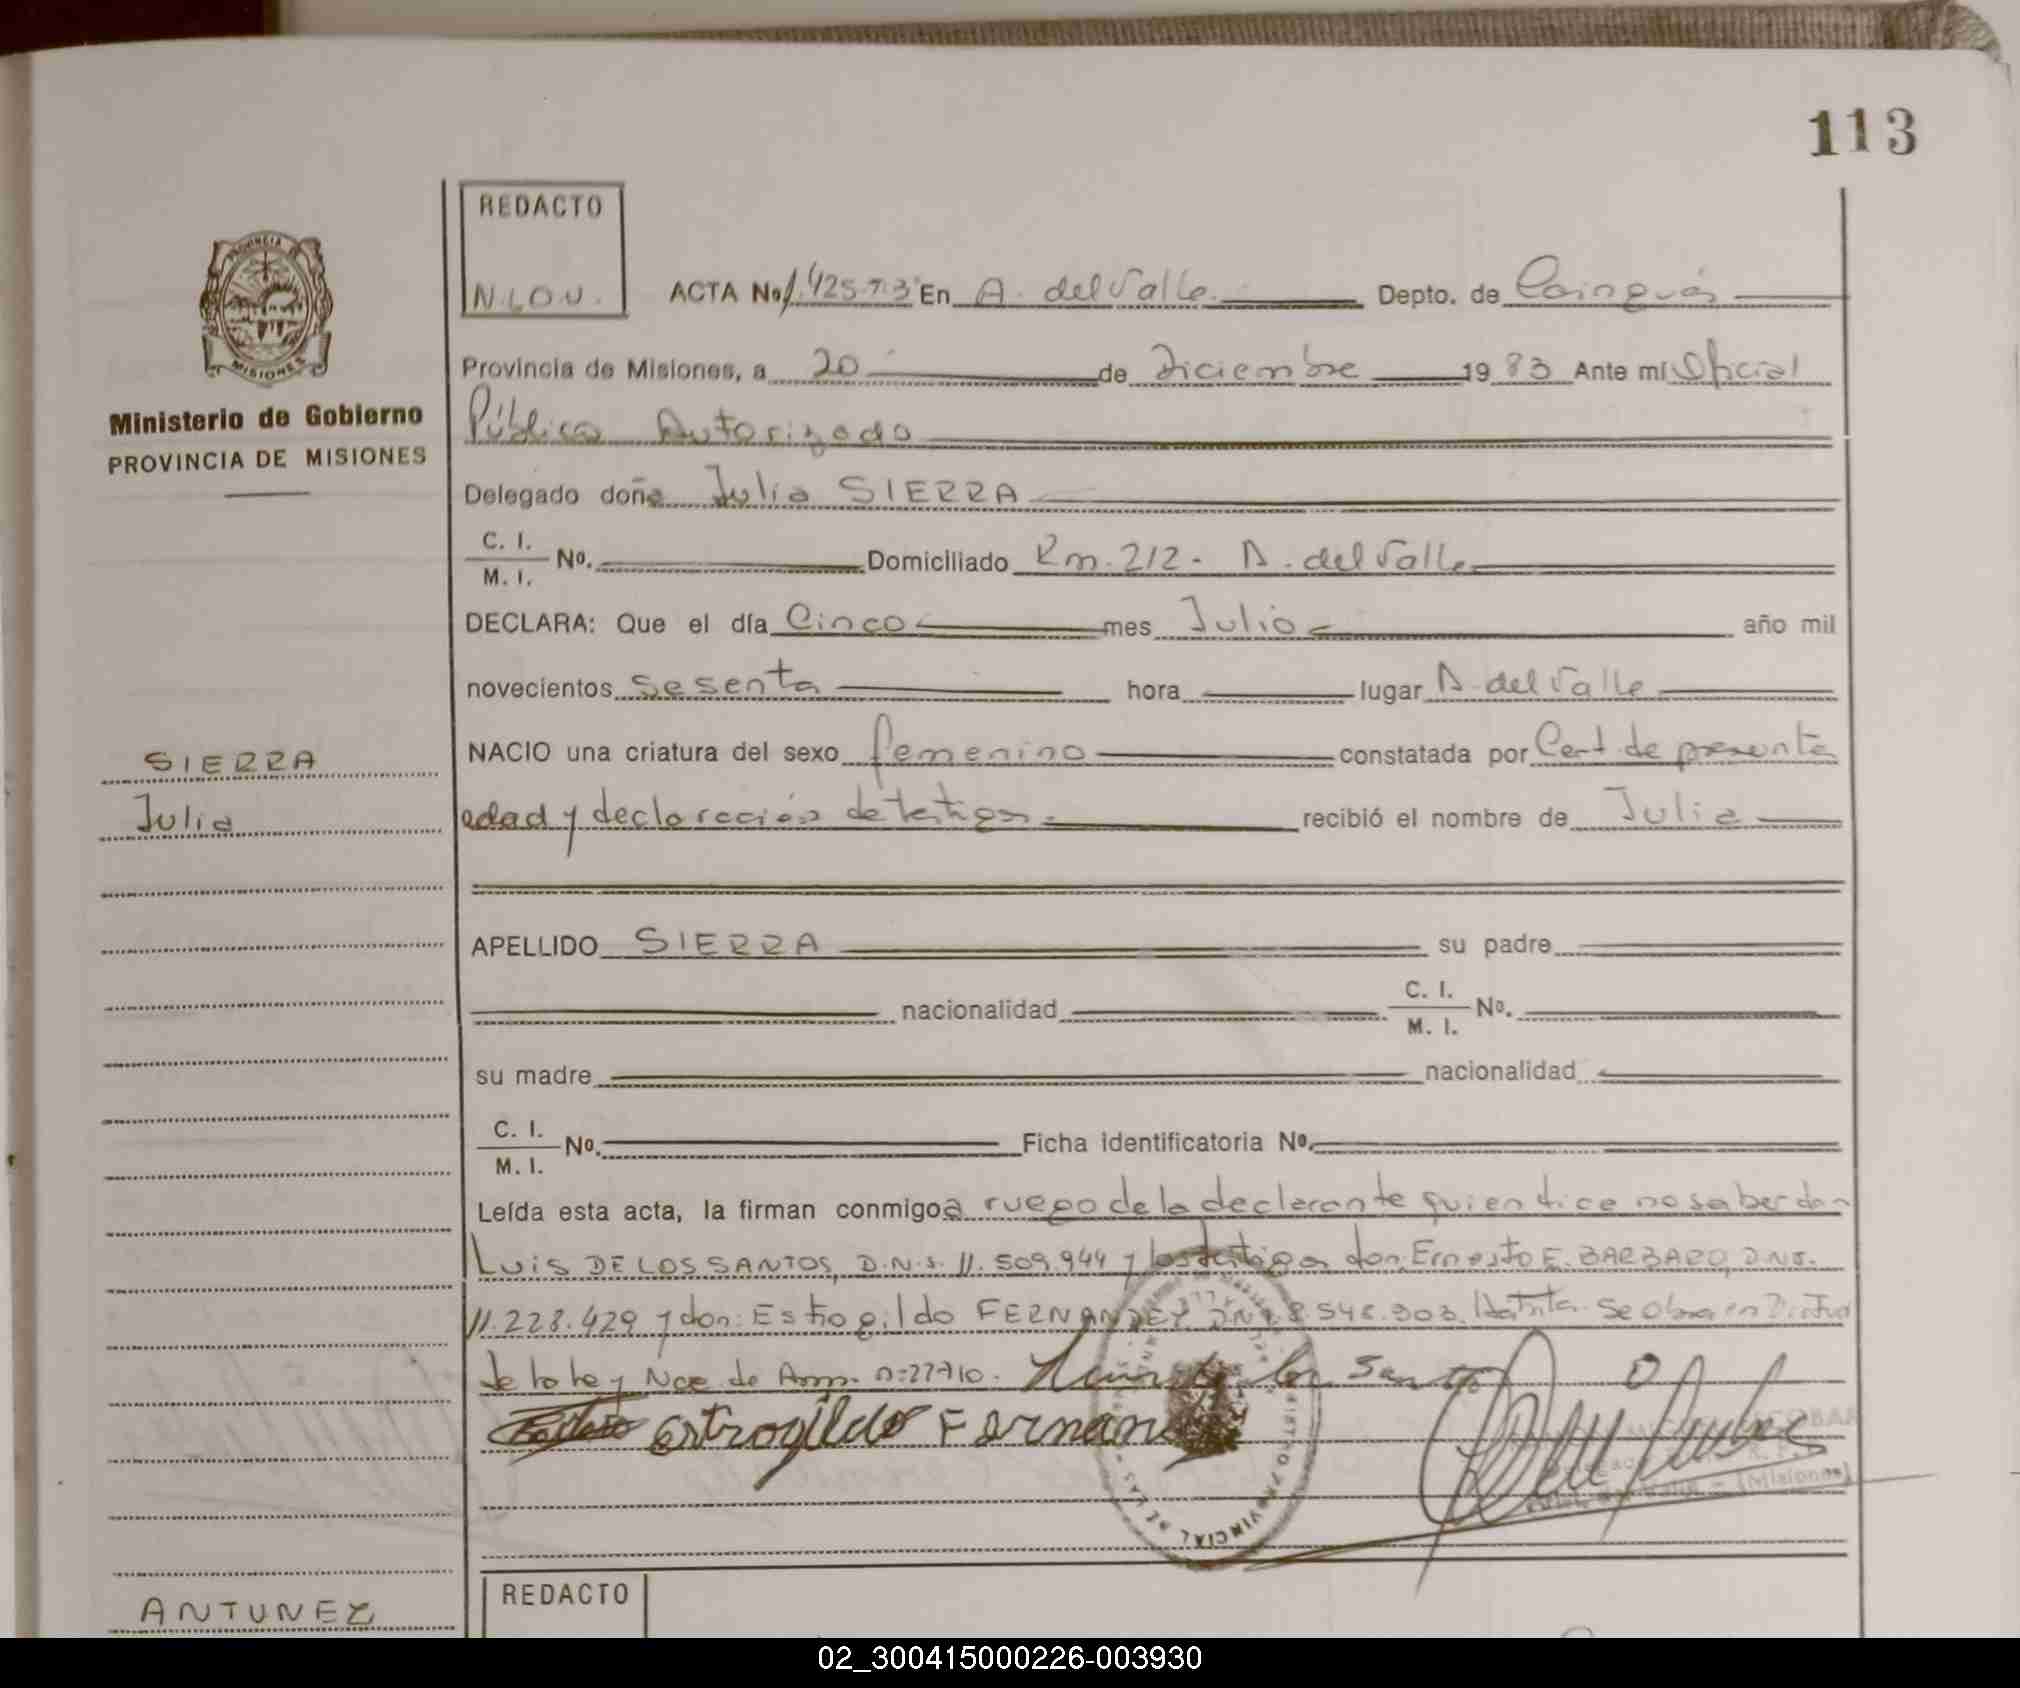 113
REDACTO
N.L.O.U.
ACTA No 1.425.T.3 En A. del Valle Depto. de Cainguás
Provincia de Misiones, a 20 de Diciembre 1983 Ante mí Oficial
Público Autorizado
Ministerio de Gobierno
PROVINCIA DE MISIONES
Delegado doña Julia SIERRA
C. I.
M. I. No. Domiciliado Km. 212 - A. del Valle
DECLARA: Que el día Cinco mes Julio año mil
novecientos sesenta hora lugar A. del Valle
NACIO una criatura del sexo femenino constatada por Cert. de presunta
SIERRA
Julia
edad y declaración de testigos recibió el nombre de Julia
APELLIDO SIERRA su padre
nacionalidad C. I.
M. I. No.
su madre nacionalidad
C. I.
M. I. No. Ficha identificatoria No.
Leída esta acta, la firman conmigo a ruego de la declarante quien dice no saber don
LUIS DE LOS SANTOS, D.N.I. 11.509.944 y los testigos don Ernesto E. BARBARO, D.N.I.
11.228.429 y don: Estrogildo FERNANDEZ DNI 8.548.303. Se Obra en
de la ley Nac de Arm. n=22710. Luis de los Santos
Estrogildo Fernan
REGISTRO PROVINCIAL DE LAS
(Misiones)
REDACTO
ANTUNEZ
02_300415000226-003930